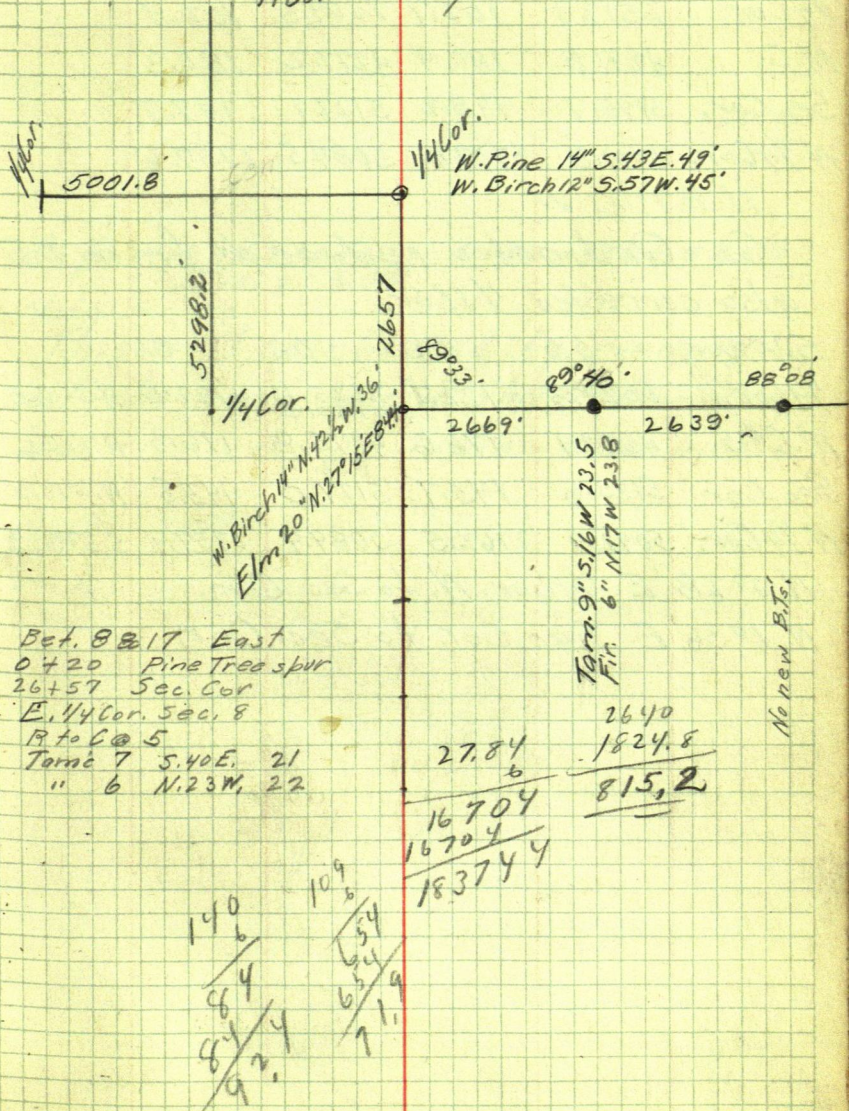 1/4 Cor.
5001.8'
1/4 Cor.
W. Pine 14" S.43E. 49'
W. Birch 12" S.57W. 45'
5298.2'
2657
1/4 Cor.
89°33'
89°40'
88°08'
2669'
2639'
W. Birch 14" N.42½W. 36'
Elm 20" N.27°15'E 84'
Tam. 9" S.16W 23.5
Fir. 6" N.17W 23.8
No new B.Ts.
Bet. 8 & 17 East
0+20 Pine Tree spur
26+57 Sec. Cor
E. 1/4 Cor. Sec. 8
R to C @ 5
Tamc 7 S.40E. 21
" 6 N.23W. 22
27.84
6
16704
16704
183744
2640
1824.8
815.2
140
6
84
84
92.4
109
6
654
654
71.9